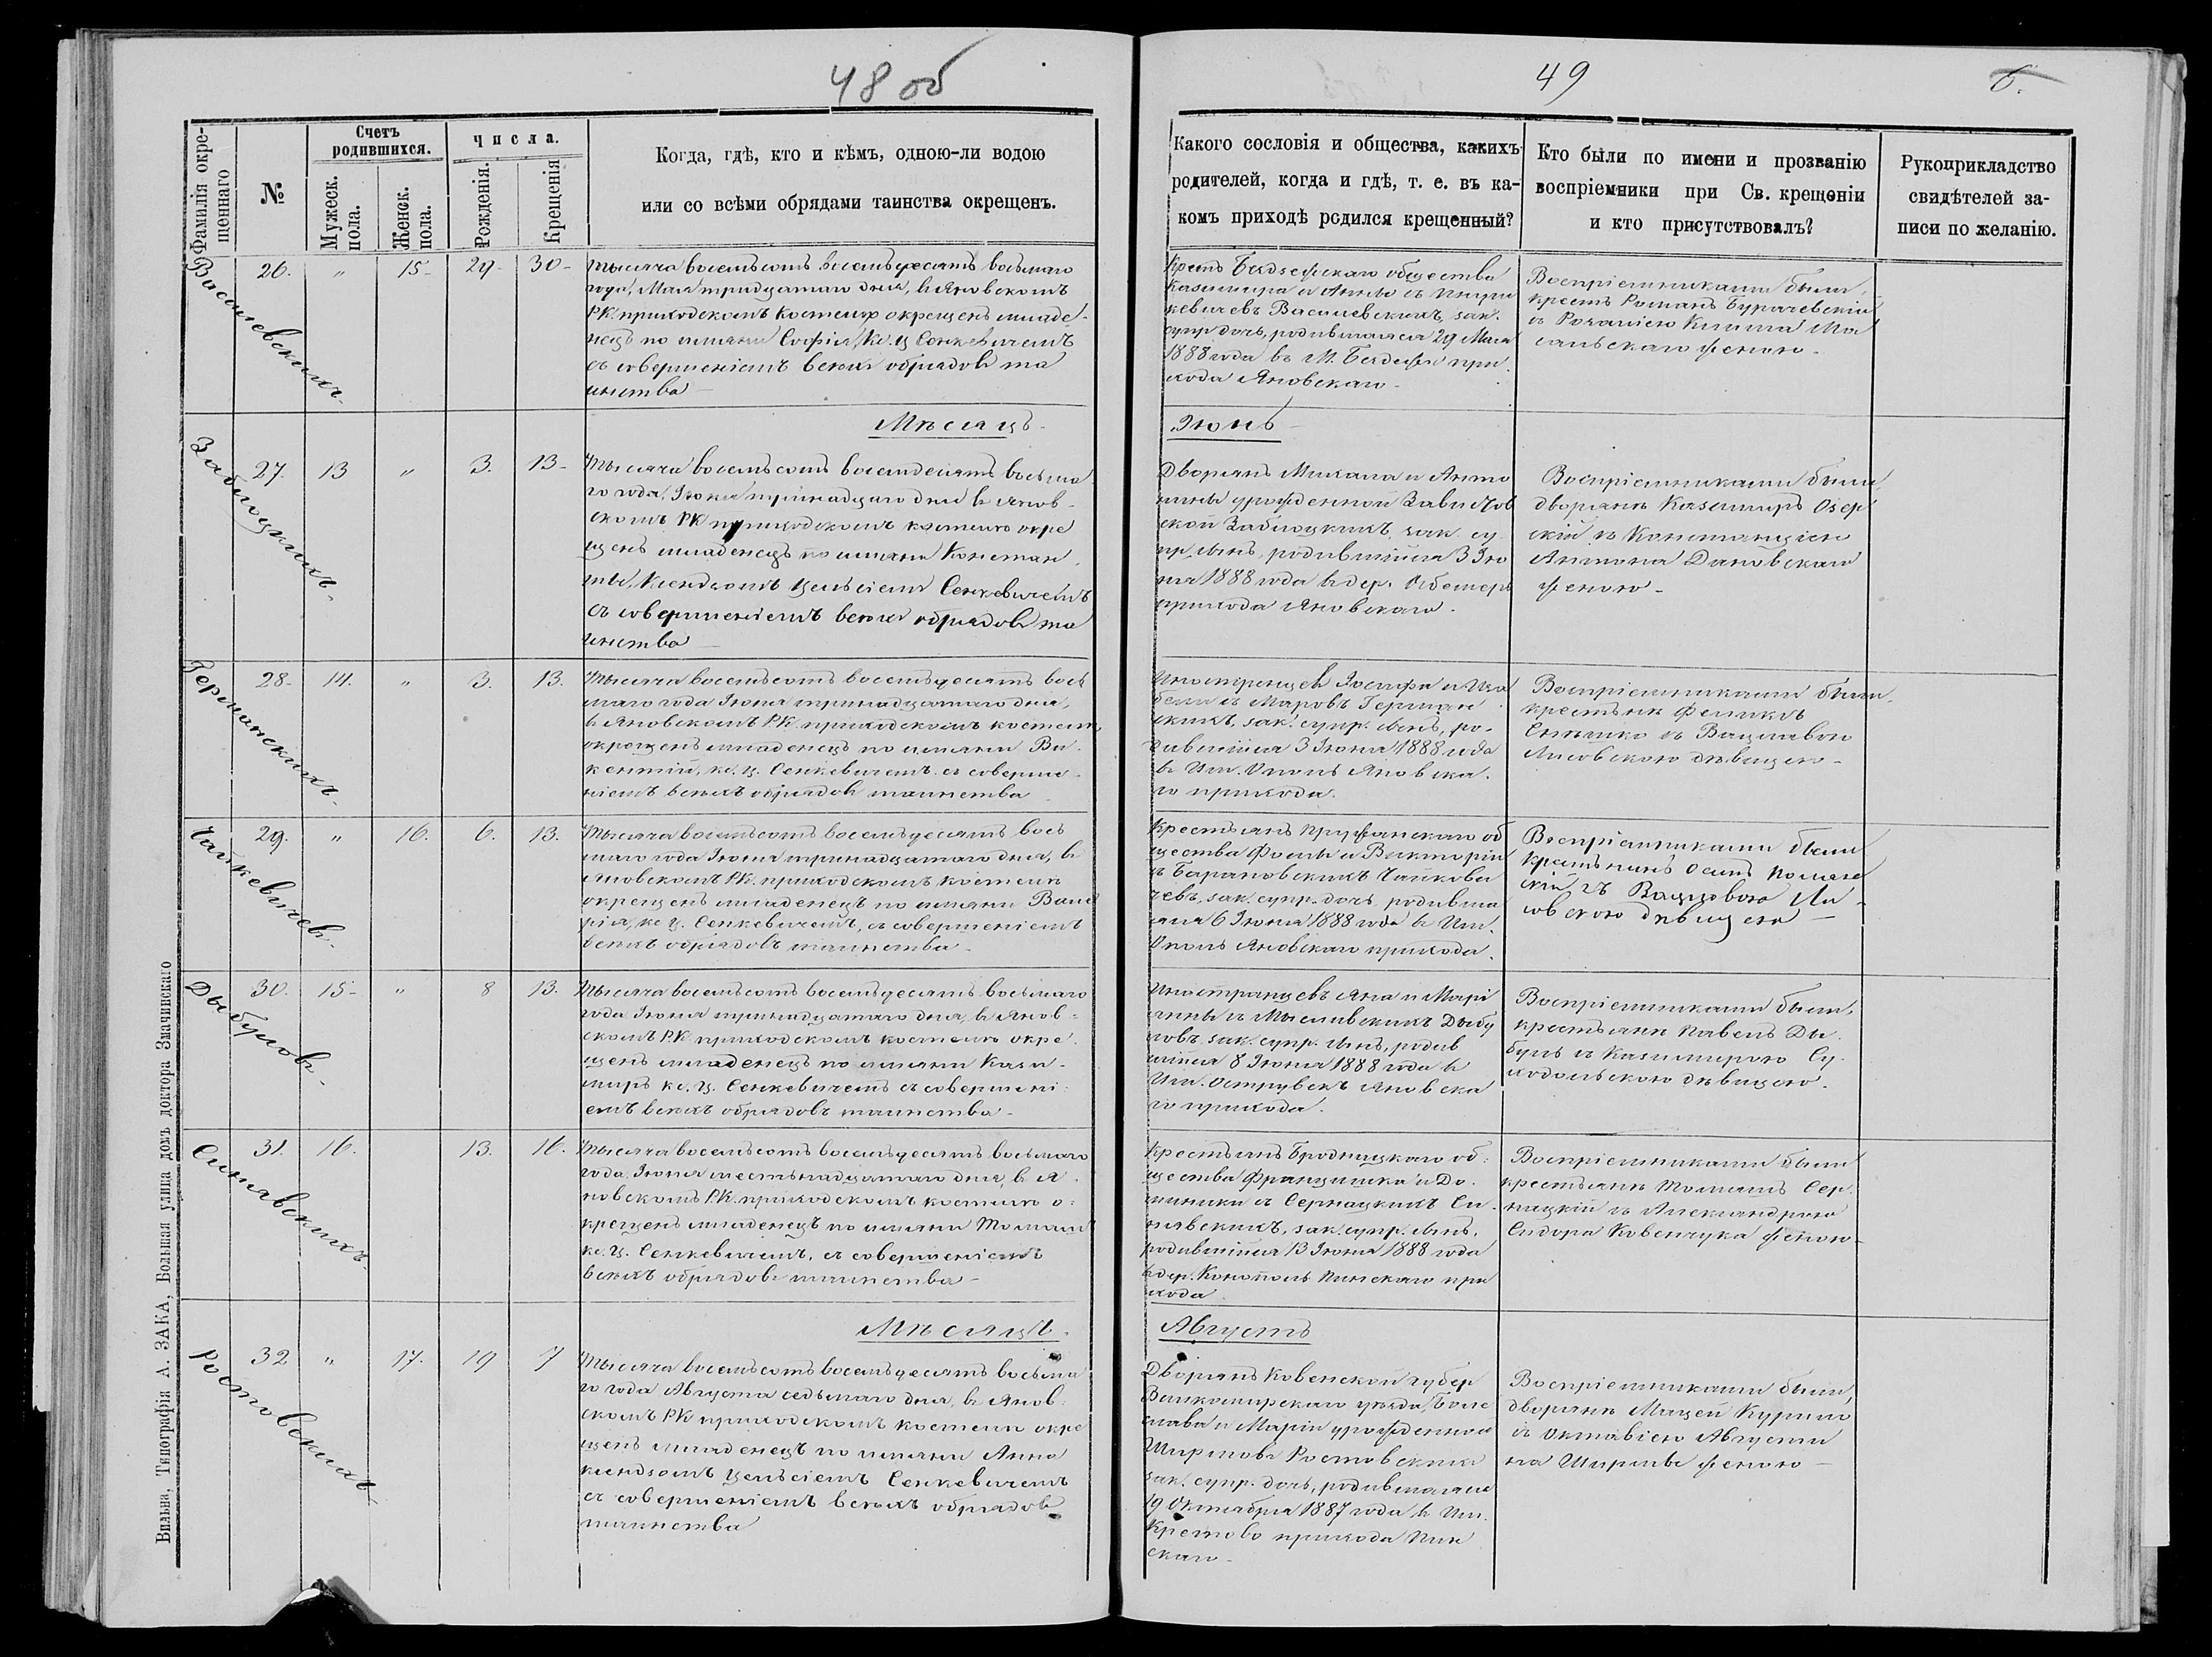 48 об
49
6.
Фамилія окре-
щеннаго
№
Счетъ
родившихся.
Мужеск.
пола.
Женск.
пола.
Числа.
Рожденія.
Крещенія
Когда, гдѣ, кто и кѣмъ, одною-ли водою
или со всѣми обрядами таинства окрещенъ.
Какого сословія и общества, какихъ
родителей, когда и гдѣ, т. е. въ ка-
комъ приходѣ родился крещенный?
Кто были по имени и прозванію
воспріемники при Св. крещеніи
и кто присутствовалъ?
Рукоприкладство
свидѣтелей за-
писи по желанію.
Василевскихъ.
26. " 15- 29- 30-
Тысяча восемьсотъ восемьдесятъ восьмаго
года, Мая тридцатаго дня, въ Яновскомъ
РК. приходскомъ костелѣ окрещенъ младе-
нецъ по имяни Софія, Кс. Ц Сенкевичемъ
съ совершеніемъ всехъ обрядовъ та
инства
Крест. общества
Казимира и Анны съ
кевичевъ Василевскихъ, зак.
супр. дочь, родившаяся 29 Мая
1888 года въ М. при
хода Яновскаго
Воспріемниками были,
крест Романъ
съ Клима
женою-
Мѣсяцъ-
Іюнь
Заблоцкихъ.
27. 13 " 3. 13-
Тысяча восемьсотъ восемдесятъ восьма
го года, Іюня тринадцаго дня въ Янов-
скомъ РК приходскомъ костелѣ окре
щенъ младенецъ по имяни Констан
ты, Ксендзомъ Цельсіемъ Сенкевичемъ
съ совершеніемъ всехъ обрядовъ та
инства
Дворянъ Михала и Анто
нины урожденной
ской Заблоцкихъ зак. су
пр. сынъ, родившійся 3 Ію
ня 1888 года въ дер.
прихода Яновскаго.
Воспріемниками были,
дворянъ Казимиръ Озер
скій съ Констанціею
Антона Дановскаго
женою-
Германскихъ.
28- 14. " 3. 13.
Тысяча восемьсотъ восемьдесятъ вось
маго года Іюня тринадцатаго дня,
въ Яновскомъ РК. приходскомъ костелѣ
окрещенъ младенецъ по имяни Ви-
кентій, кс. Ц. Сенкевичемъ съ соверше-
ніемъ всехъ обрядовъ таинства
Иностранцевъ Іосифа и Иза
белы съ Маровъ Герман
скихъ, зак. супр. сынъ, ро-
дившійся 3 Іюня 1888 года
въ Им. Ополь Яновска-
го прихода.
Воспріемниками были,
крестьянъ Феликсъ
съ Вацлавою
дѣвицею-
Чайкевичевъ.
29. " 16. 6. 13.
Тысяча восемьсотъ восемьдесятъ вось
маго года Іюня тринадцатаго дня, въ
Яновскомъ РК. приходскомъ костелѣ
окрещенъ младенецъ по имяни Вале
рія, кс. Ц. Сенкевичемъ, съ совершеніемъ
всехъ обрядовъ таинства-
Крестьянъ Пружанскаго об
щества Фомы и Викторіи
съ Барановскихъ Чайкеви
чевъ, зак. супр. дочь родивша
аяся 6 Іюня 1888 года въ Им.
Ополь Яновскаго прихода.
Воспріемниками были
крестьянинъ Осипъ
скій съ
дѣвицею
Дыбуловъ.
30. 15- " 8 13.
Тысяча восемьсотъ восемьдесятъ восьмаго
года Іюня тринадцатаго дня, въ Янов-
скомъ РК приходскомъ костелѣ окре
щенъ младенецъ по имяни Кази-
миръ кс. Ц. Сенкевичемъ съ совершені-
емъ всехъ обрядовъ таинства-
Иностранцевъ Яна и Марі
анны съ Мысливскихъ Дыбу
ловъ, зак. супр. сынъ, родив
шійся 8 Іюня 1888 года въ
Им. Островекъ Яновска
го прихода.
Воспріемниками были,
крестьянъ Павелъ Ды
булъ съ Казимирою Су
ходольскою дѣвицею.
Синявскихъ.
31. 16. 13. 16.
Тысяча восемьсотъ восемьдесятъ восьмаго
года Іюня шестьнадцатаго дня, въ Я-
новскомъ РК. приходскомъ костелѣ о-
крещенъ младенецъ по имяни Томашъ
кс. Ц. Сенкевичемъ, съ совершеніемъ
всехъ обрядовъ таинства-
Крестьянъ Бродницкаго об-
щества Францишка и До-
миники съ Сернацкихъ Си-
нявскихъ, зак. супр. сынъ,
родившійся 13 Іюня 1888 года
въ дер. Пинскаго при
хода
Воспріемниками были
крестьянъ Томашъ Сер
нацкій съ Александрою
Сидора Ковенчука женою-
Мѣсяцъ.
Августъ
Ростовскихъ
32 " 17. 19 7
Тысяча восемьсотъ восемьдесятъ восьма
го года Августа седьмаго дня, въ Янов-
скомъ РК приходскомъ костелѣ окре
щенъ младенецъ по имяни Анна
ксендзомъ Цельсіемъ Сенкевичемъ
съ совершеніемъ всехъ обрядовъ
таинства
Дворянъ Ковенской губер
Вилкомирскаго уѣзда, Боле
слава и Маріи урожденной
Ширмовъ Ростовскихъ
зак. супр. дочь, родившаяся
19 Октября 1887 года въ Им.
прихода Пин
скаго-
Воспріемниками были,
дворянъ Мацей
съ Октавіею Августи
на Ширмы женою-
Вильна, Типографія А. ЗАКА, Большая улица домъ доктора Змачинскаго